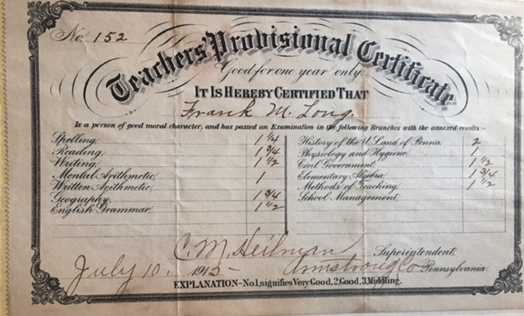 No. 152
Teachers Provisional Certificate
Good for one year only.
IT IS HEREBY CERTIFIED THAT
Frank M. Long
Is a person of good moral character, and has passed an Examination in the following Branches with the annexed results:-
Spelling, 1 1/4
Reading, 1 3/4
Writing, 1 1/2
Mental Arithmetic, 1
Written Arithmetic,
Geography, 1 3/4
English Grammar, 1 1/2
History of the U.S. and of Penna. 2
Physiology and Hygiene,
Civil Government, 1 1/2
Elementary Algebra, 1 3/4
Methods of Teaching, 1 1/2
School Management,
C. M. Heilman Superintendent,
July 10, 1915 Armstrong Co Pennsylvania
EXPLANATION-No. 1, signifies Very Good, 2 Good, 3 Middling.